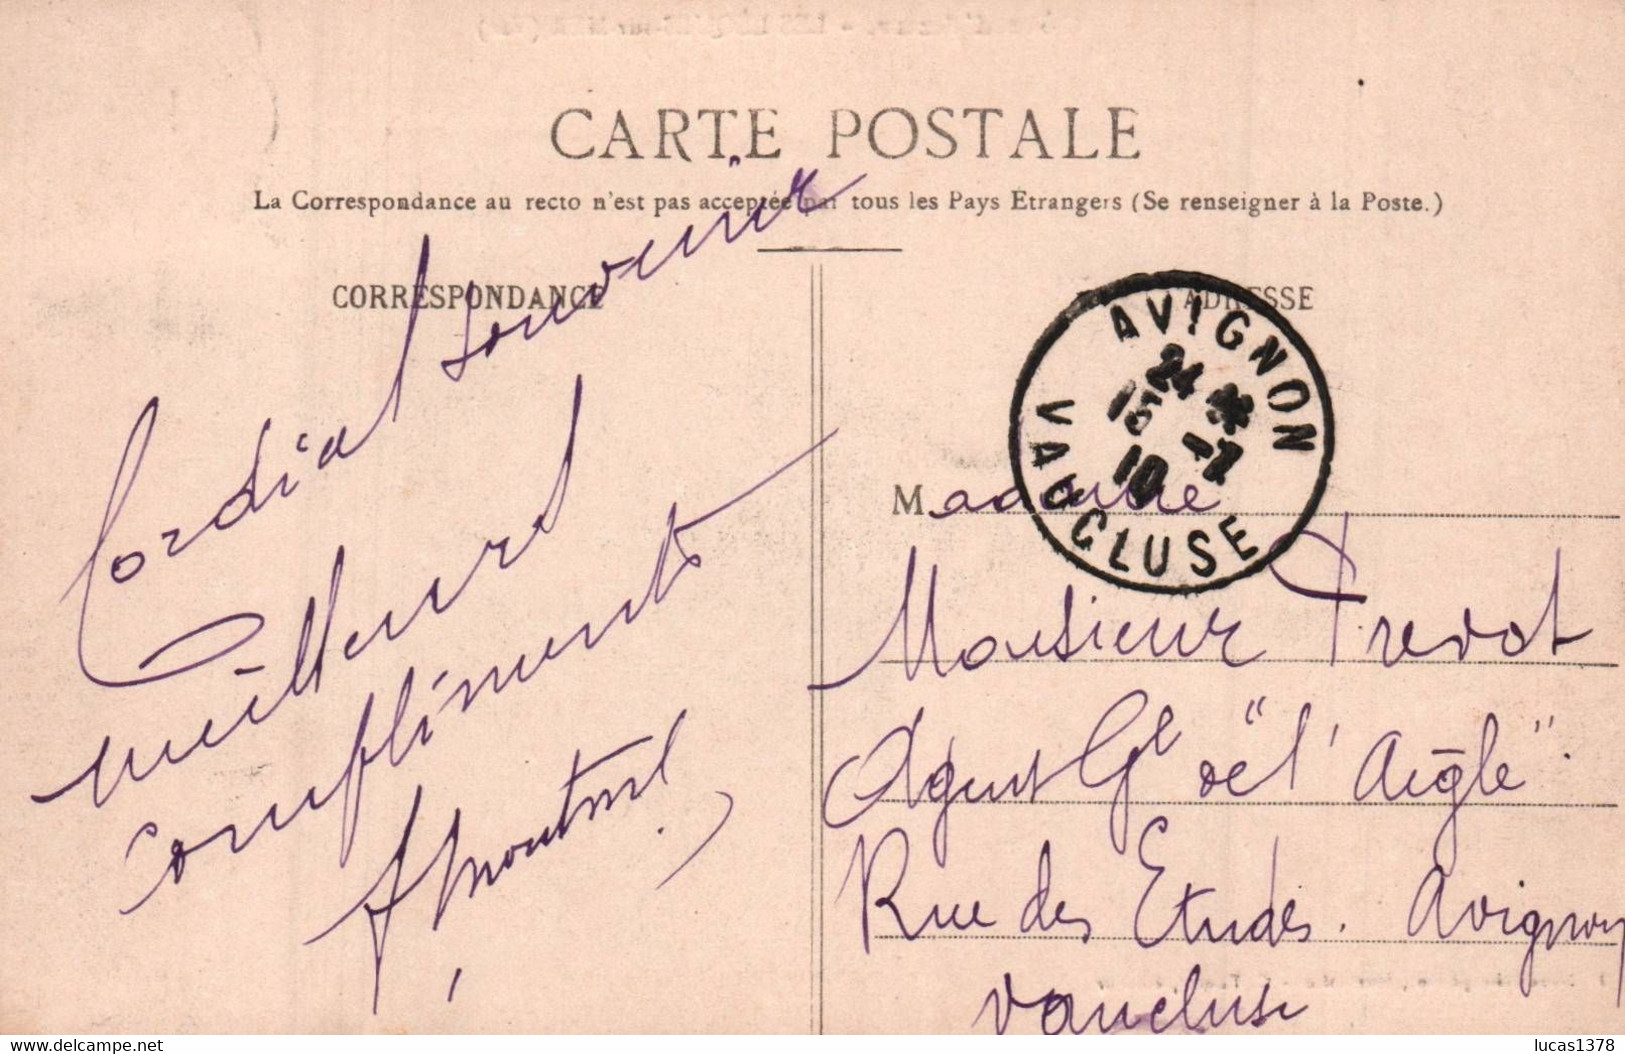 CARTE POSTALE
La Correspondance au recto n'est pas acceptée par tous les Pays Etrangers (Se renseigner à la Poste.)
CORRESPONDANCE
ADRESSE
Cordial souvenir
meilleurs
compliments
AVIGNON
24
15 -7
10
VAUCLUSE
Madame
Monsieur Prevot
Agent Gl de "l'Aigle".
Rue des Etudes. Avignon
Vaucluse
delcampe.net
lucas1378